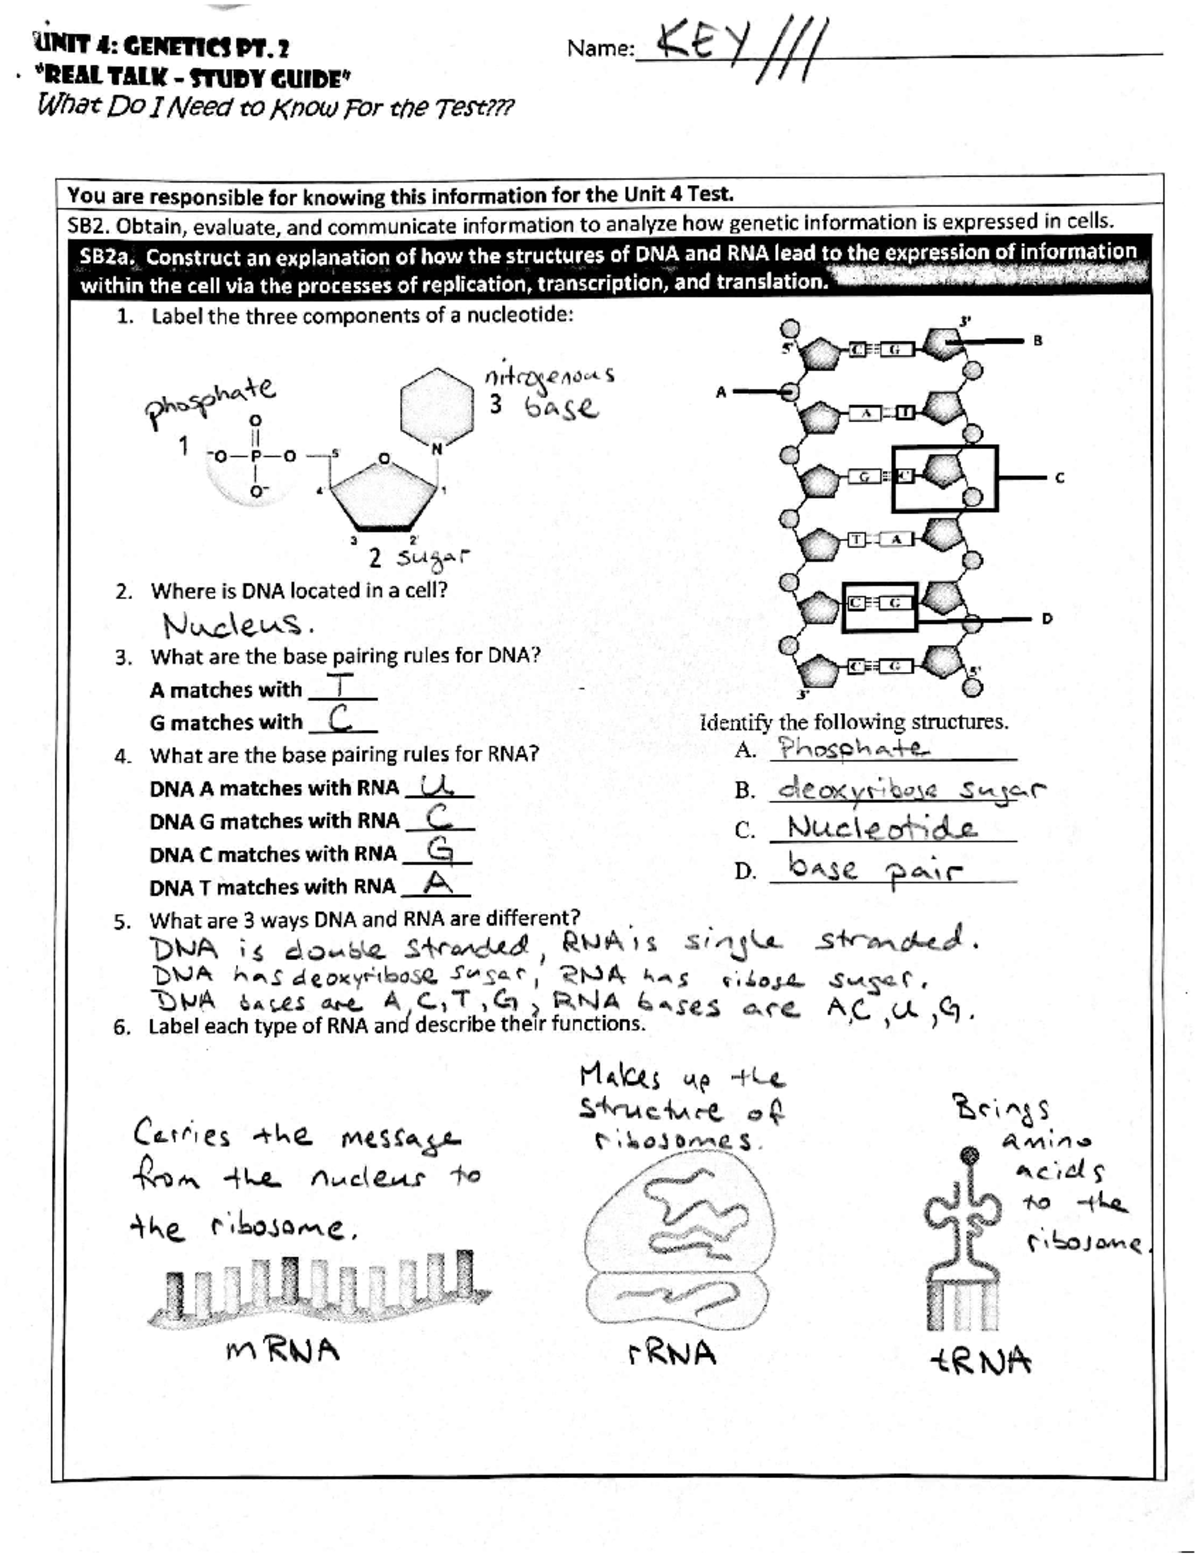 UNIT 4: GENETICS PT. 2
Name: KEY///
"REAL TALK - STUDY GUIDE"
What Do I Need to Know For the Test???
You are responsible for knowing this information for the Unit 4 Test.
SB2. Obtain, evaluate, and communicate information to analyze how genetic information is expressed in cells.
SB2a. Construct an explanation of how the structures of DNA and RNA lead to the expression of information
within the cell via the processes of replication, transcription, and translation.
1. Label the three components of a nucleotide:
phosphate
1
nitrogenous
3 base
O
-O—P—O
O-
5'
4'
O
N
1'
3'
2'
2 sugar
2. Where is DNA located in a cell?
Nucleus.
3. What are the base pairing rules for DNA?
A matches with T
G matches with C
4. What are the base pairing rules for RNA?
DNA A matches with RNA U
DNA G matches with RNA C
DNA C matches with RNA G
DNA T matches with RNA A
5'
C G
3'
B
A
A T
G C
C
T A
C G
D
C G
3'
5'
Identify the following structures.
A. Phosphate
B. deoxyribose sugar
C. Nucleotide
D. base pair
5. What are 3 ways DNA and RNA are different?
DNA is double stranded, RNA is single stranded.
DNA has deoxyribose sugar, RNA has ribose sugar.
DNA bases are A,C,T,G, RNA bases are A,C,U,G.
6. Label each type of RNA and describe their functions.
Carries the message
from the nucleus to
the ribosome.
mRNA
Makes up the
structure of
ribosomes.
rRNA
Brings
amino
acids
to the
ribosome.
tRNA